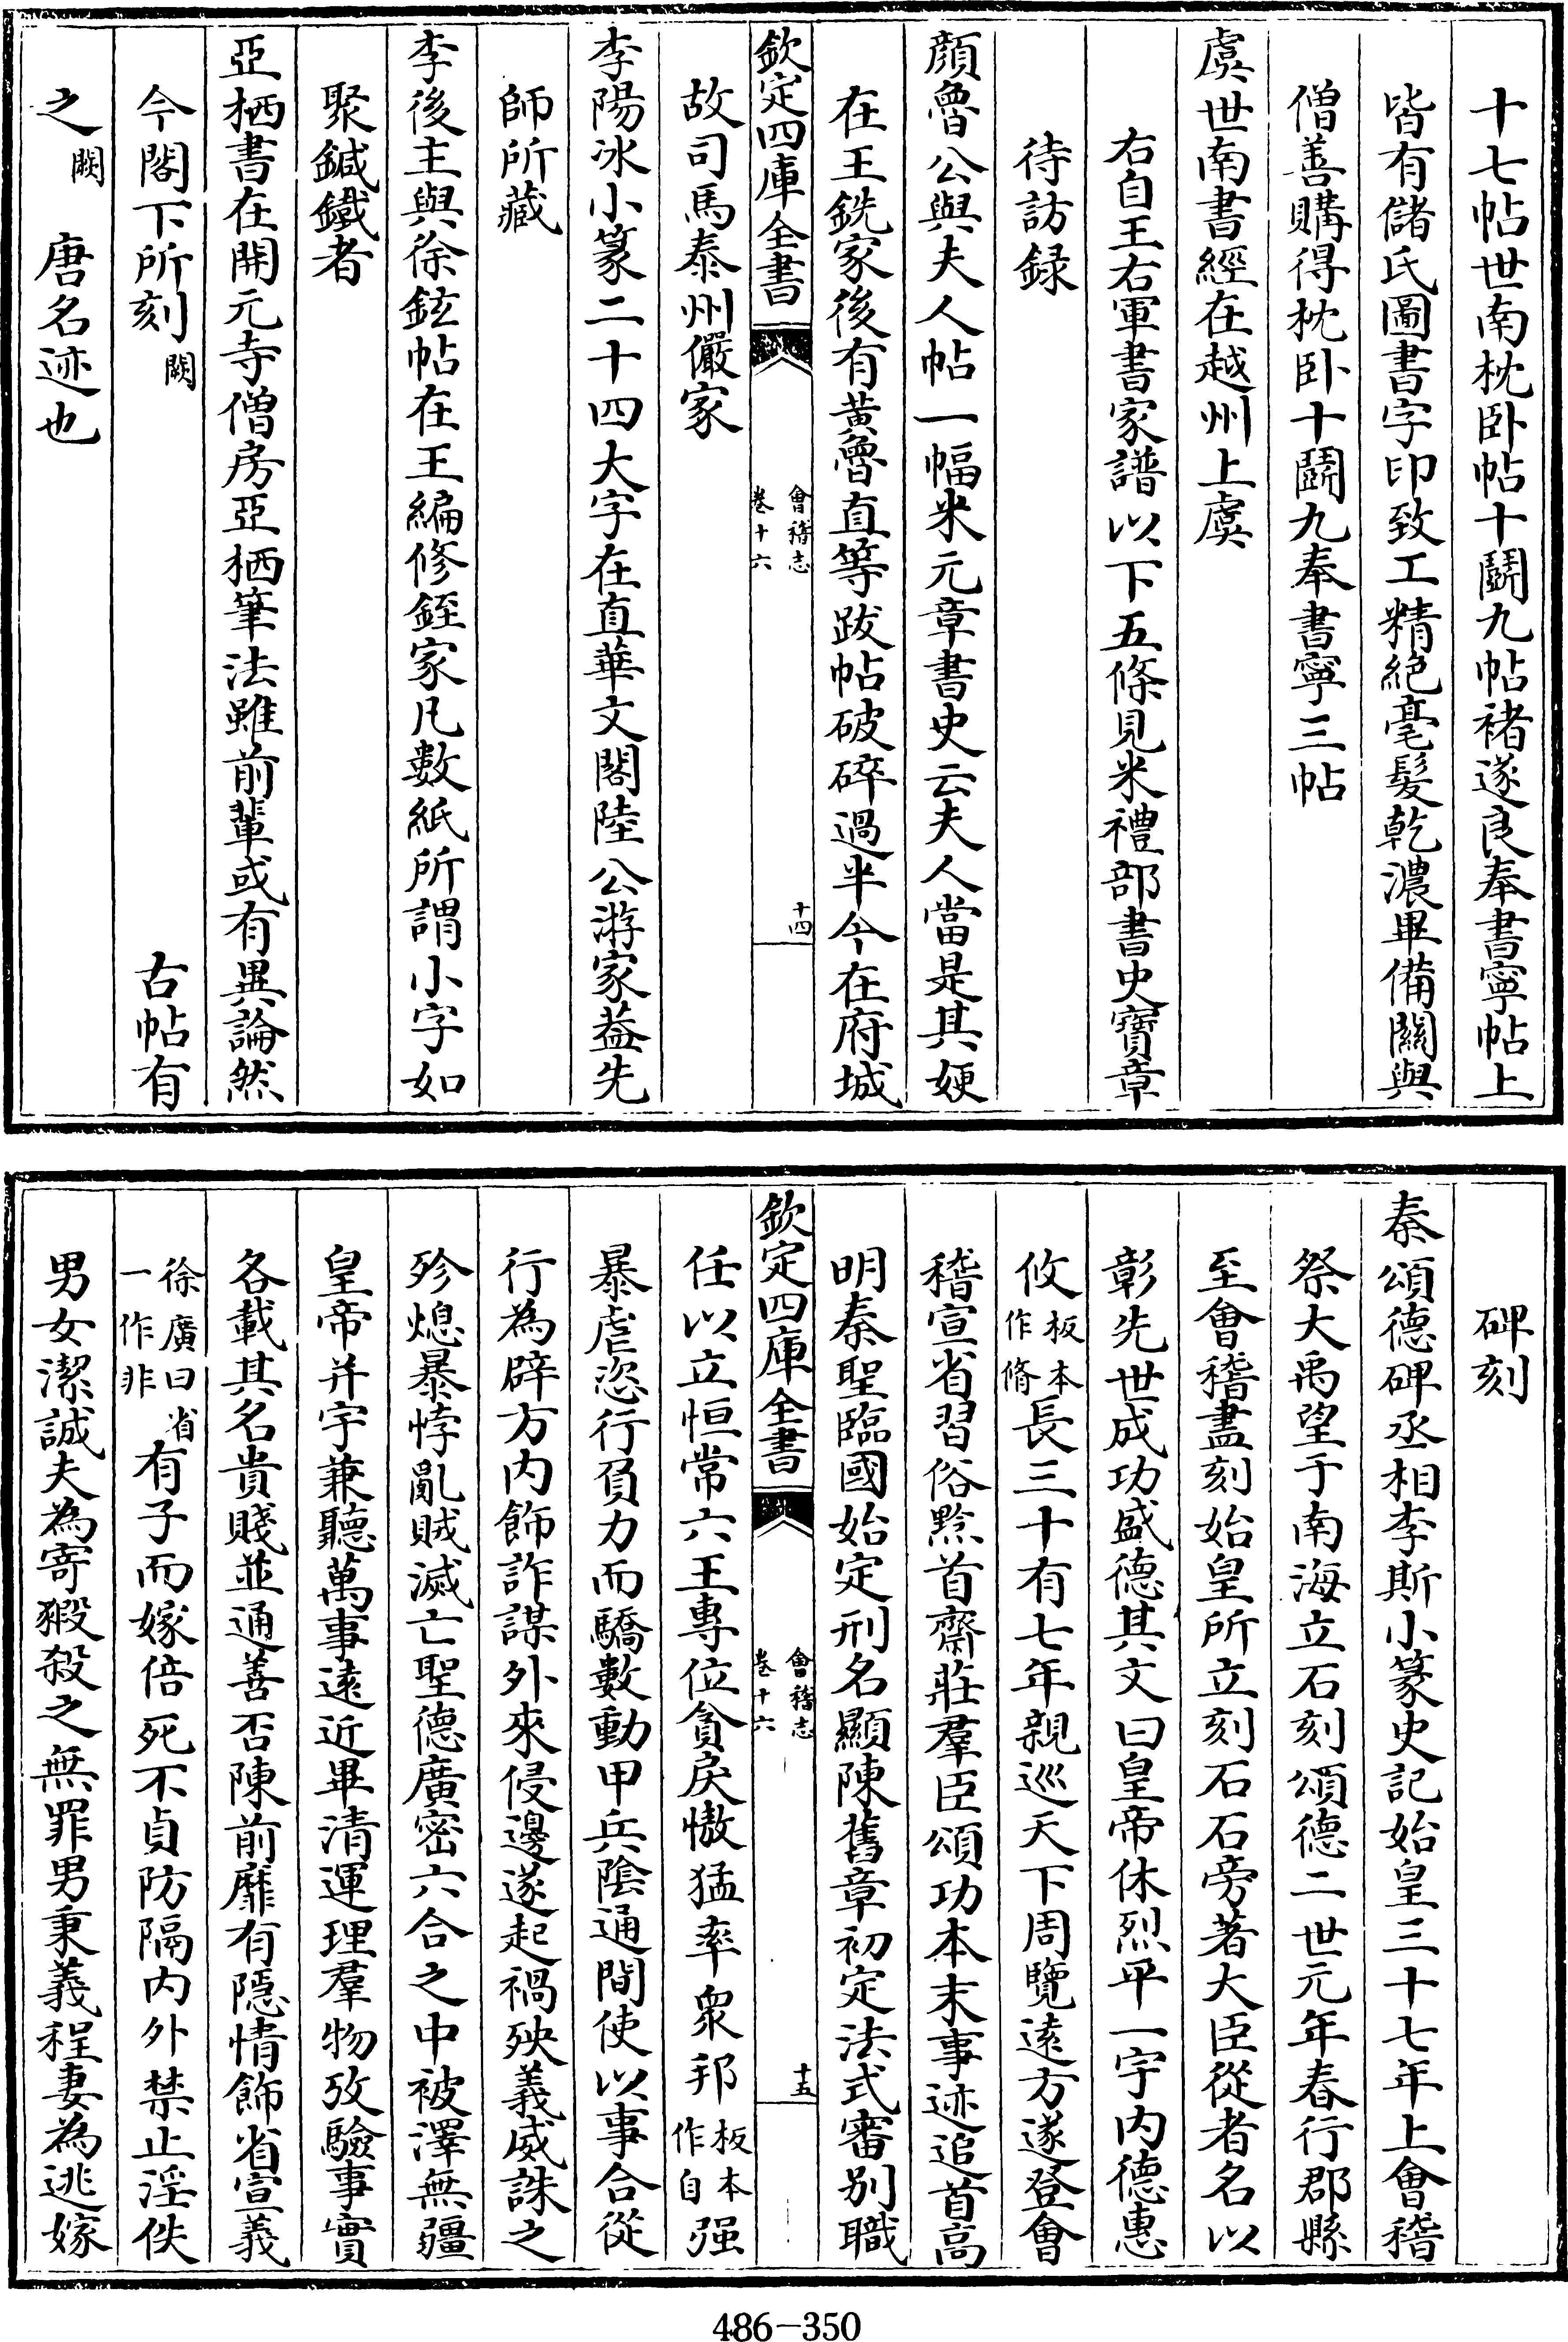 十七帖世南枕卧帖十鬭九帖褚遂良奉書寧帖上
皆有儲氏圖書字印致工精絶毫髪乾濃畢備關與
僧善購得枕卧十鬭九奉書寧三帖
虞世南書經在越州上虞
右自王右軍書家譜以下五條見米禮部書史寶章
待訪録
顔魯公與夫人帖一幅米元章書史云夫人當是其㛐
在王銑家後有黄魯直等跋帖破碎過半今在府城
欽定四庫全書
會稽志
卷十六
十四
故司馬泰州儼家
李陽冰小篆二十四大字在直華文閣陸公游家葢先
師所藏
李後主與徐鉉帖在王編修銍家凡數紙所謂小字如
聚鍼鐵者
亞栖書在開元寺僧房亞栖筆法雖前輩或有異論然
今閣下所刻闕　古帖有
之闕　唐名迹也
碑刻
秦頌德碑丞相李斯小篆史記始皇三十七年上會稽
祭大禹望于南海立石刻頌德二世元年春行郡縣
至會稽盡刻始皇所立刻石石旁著大臣從者名以
彰先世成功盛德其文曰皇帝休烈平一宇内德惠
攸板本作脩長三十有七年親巡天下周覽遠方遂登會
稽宣省習俗黔首齋莊羣臣頌功本末事迹追首高
明秦聖臨國始定刑名顯陳舊章初定法式審别職
欽定四庫全書
會稽志
卷十六
十五
任以立恒常六王專位貪戾慠猛率衆邦板本作自强
暴虐恣行負力而驕數動甲兵陰通間使以事合從
行為辟方内飾詐謀外來侵邊遂起禍殃義威誅之
殄熄暴悖亂賊滅亡聖德廣密六合之中被澤無疆
皇帝并宇兼聽萬事逺近畢清運理羣物攷驗事實
各載其名貴賤並通善否陳前靡有隠情飾省宣義
徐廣曰省一作非有子而嫁倍死不貞防隔内外禁止淫佚
男女潔誠夫為寄猳殺之無罪男秉義程妻為逃嫁
486-350